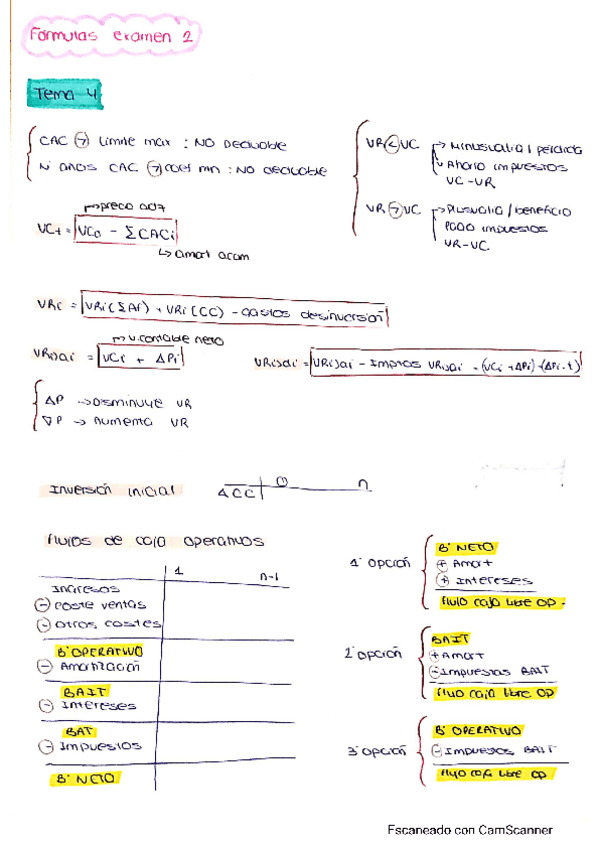 Fórmulas examen 2
Tema 4
CAC > límite max : NO Deducible
Nº años CAC > coef mn : NO deducible
VR < VC → Minusvalía / pérdida
→ Ahorro impuestos
VC - VR
VR > VC → Plusvalía / beneficio
pago impuestos
VR - VC
→ precio adq
VCt = VC0 - ΣCACi
↳ amort acum
VRi = VRi (ΣAF) + VRi (CC) - gastos desinversión
→ v. contable neto
VRiai = VCi + ΔPi
VRidi = VRiai - Impros VRiai = (VCi + ΔPi) - (ΔPi · t)
ΔP → Disminuye VR
∇P → Aumenta VR
Inversión inicial
ΔCC
0
n
Flujos de caja operativos
1
n-1
Ingresos
- coste ventas
- otros costes
Bº OPERATIVO
- Amortización
BAIT
- Intereses
BAT
- Impuestos
Bº NETO
1ª opción
Bº NETO
+ Amort
+ Intereses
flujo caja libre OP.
2ª opción
BAIT
+ Amort
- Impuestos BAIT
flujo caja libre OP
3ª opción
Bº OPERATIVO
- Impuestos BAIT
flujo caja libre OP
Escaneado con CamScanner